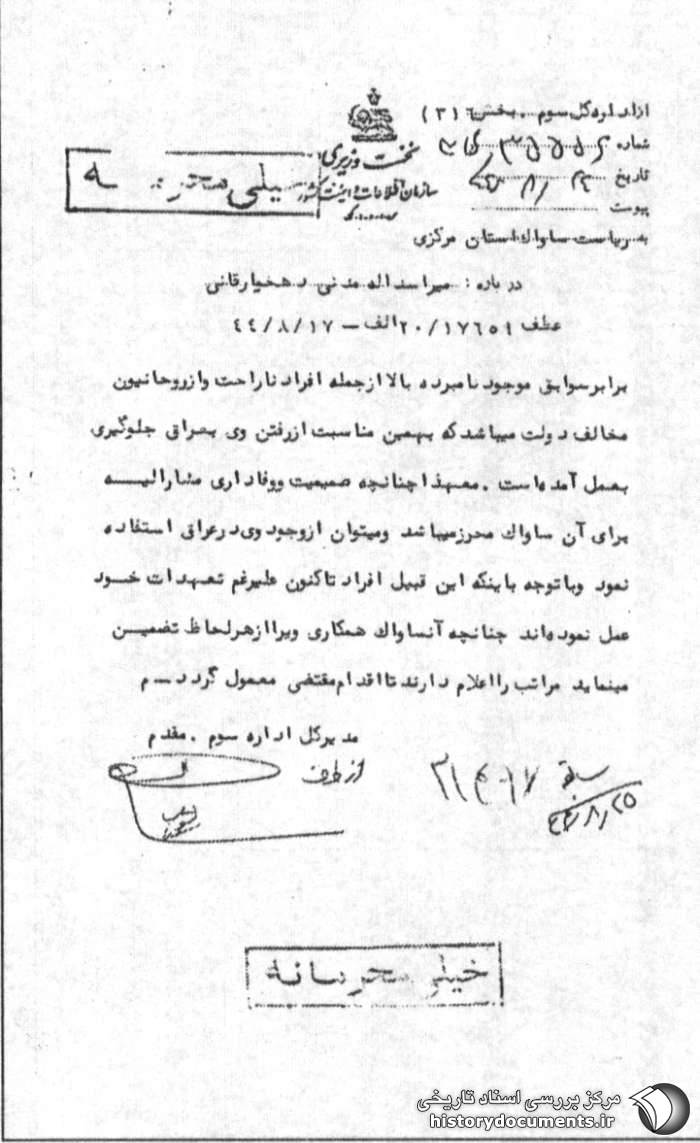 از اداره کل سوم . بخش (۳۱۶)
شماره
تاریخ ۲۴ / ۸ / ۴۴
پیوست
نخست وزیری
سازمان اطلاعات و امنیت کشور
خیلی محرمانه
به ریاست ساواک استان مرکزی
درباره : میراسداله مدنی دهخیارقانی
عطف ۲۰/۱۷۶۵۹ الف – ۴۴/۸/۱۷
برابر سوابق موجود نامبرده بالا از جمله افراد ناراحت و از روحانیون
مخالف دولت میباشد که بهمین مناسبت از رفتن وی بعراق جلوگیری
بعمل آمده است . معهذا چنانچه صمیمیت و وفاداری مشارالیه
برای آن ساواک محرز میباشد ومیتوان از وجود وی در عراق استفاده
نمود وباتوجه باینکه این قبیل افراد تاکنون علیرغم تعهدات خود
عمل نموده‌اند چنانچه آنساواک همکاری ویرا از هر لحاظ تضمین
مینماید مراتب را اعلام دارند تا اقدام مقتضی معمول گردد _ م
مدیر کل اداره سوم . مقدم
از طرف
۴۴/۸/۲۵
خیلی محرمانه
مرکز بررسی اسناد تاریخی
historydocuments.ir